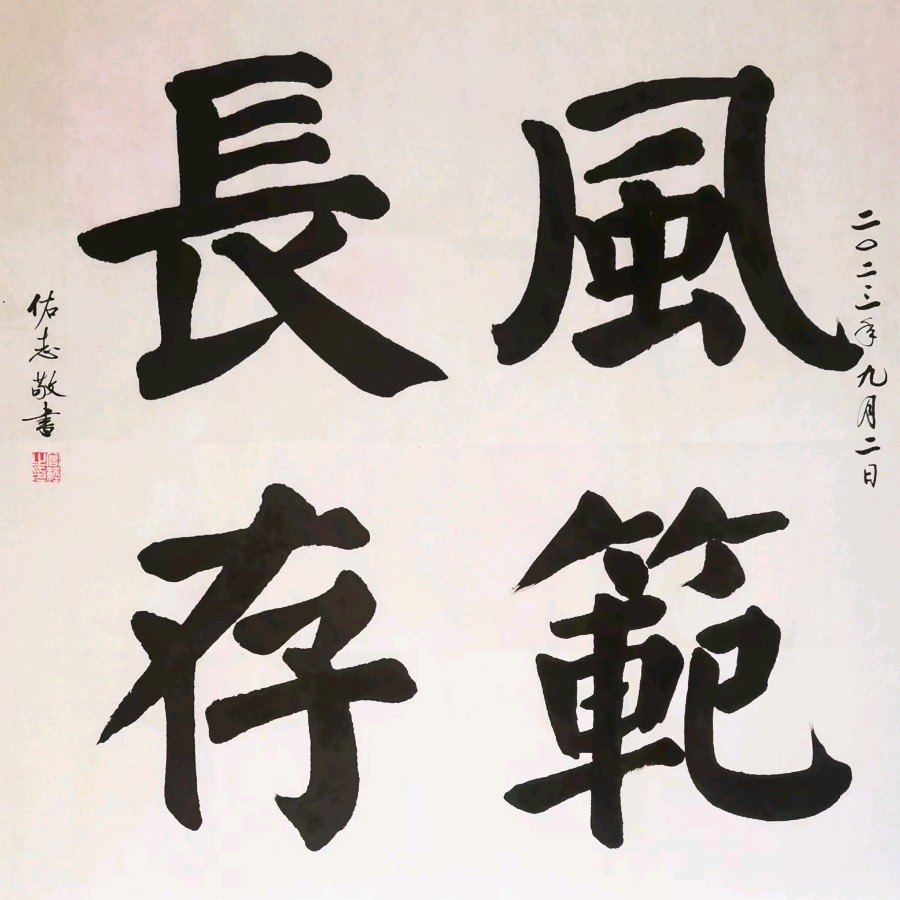 二〇二三年九月二日
風範
長存
佑志敬書